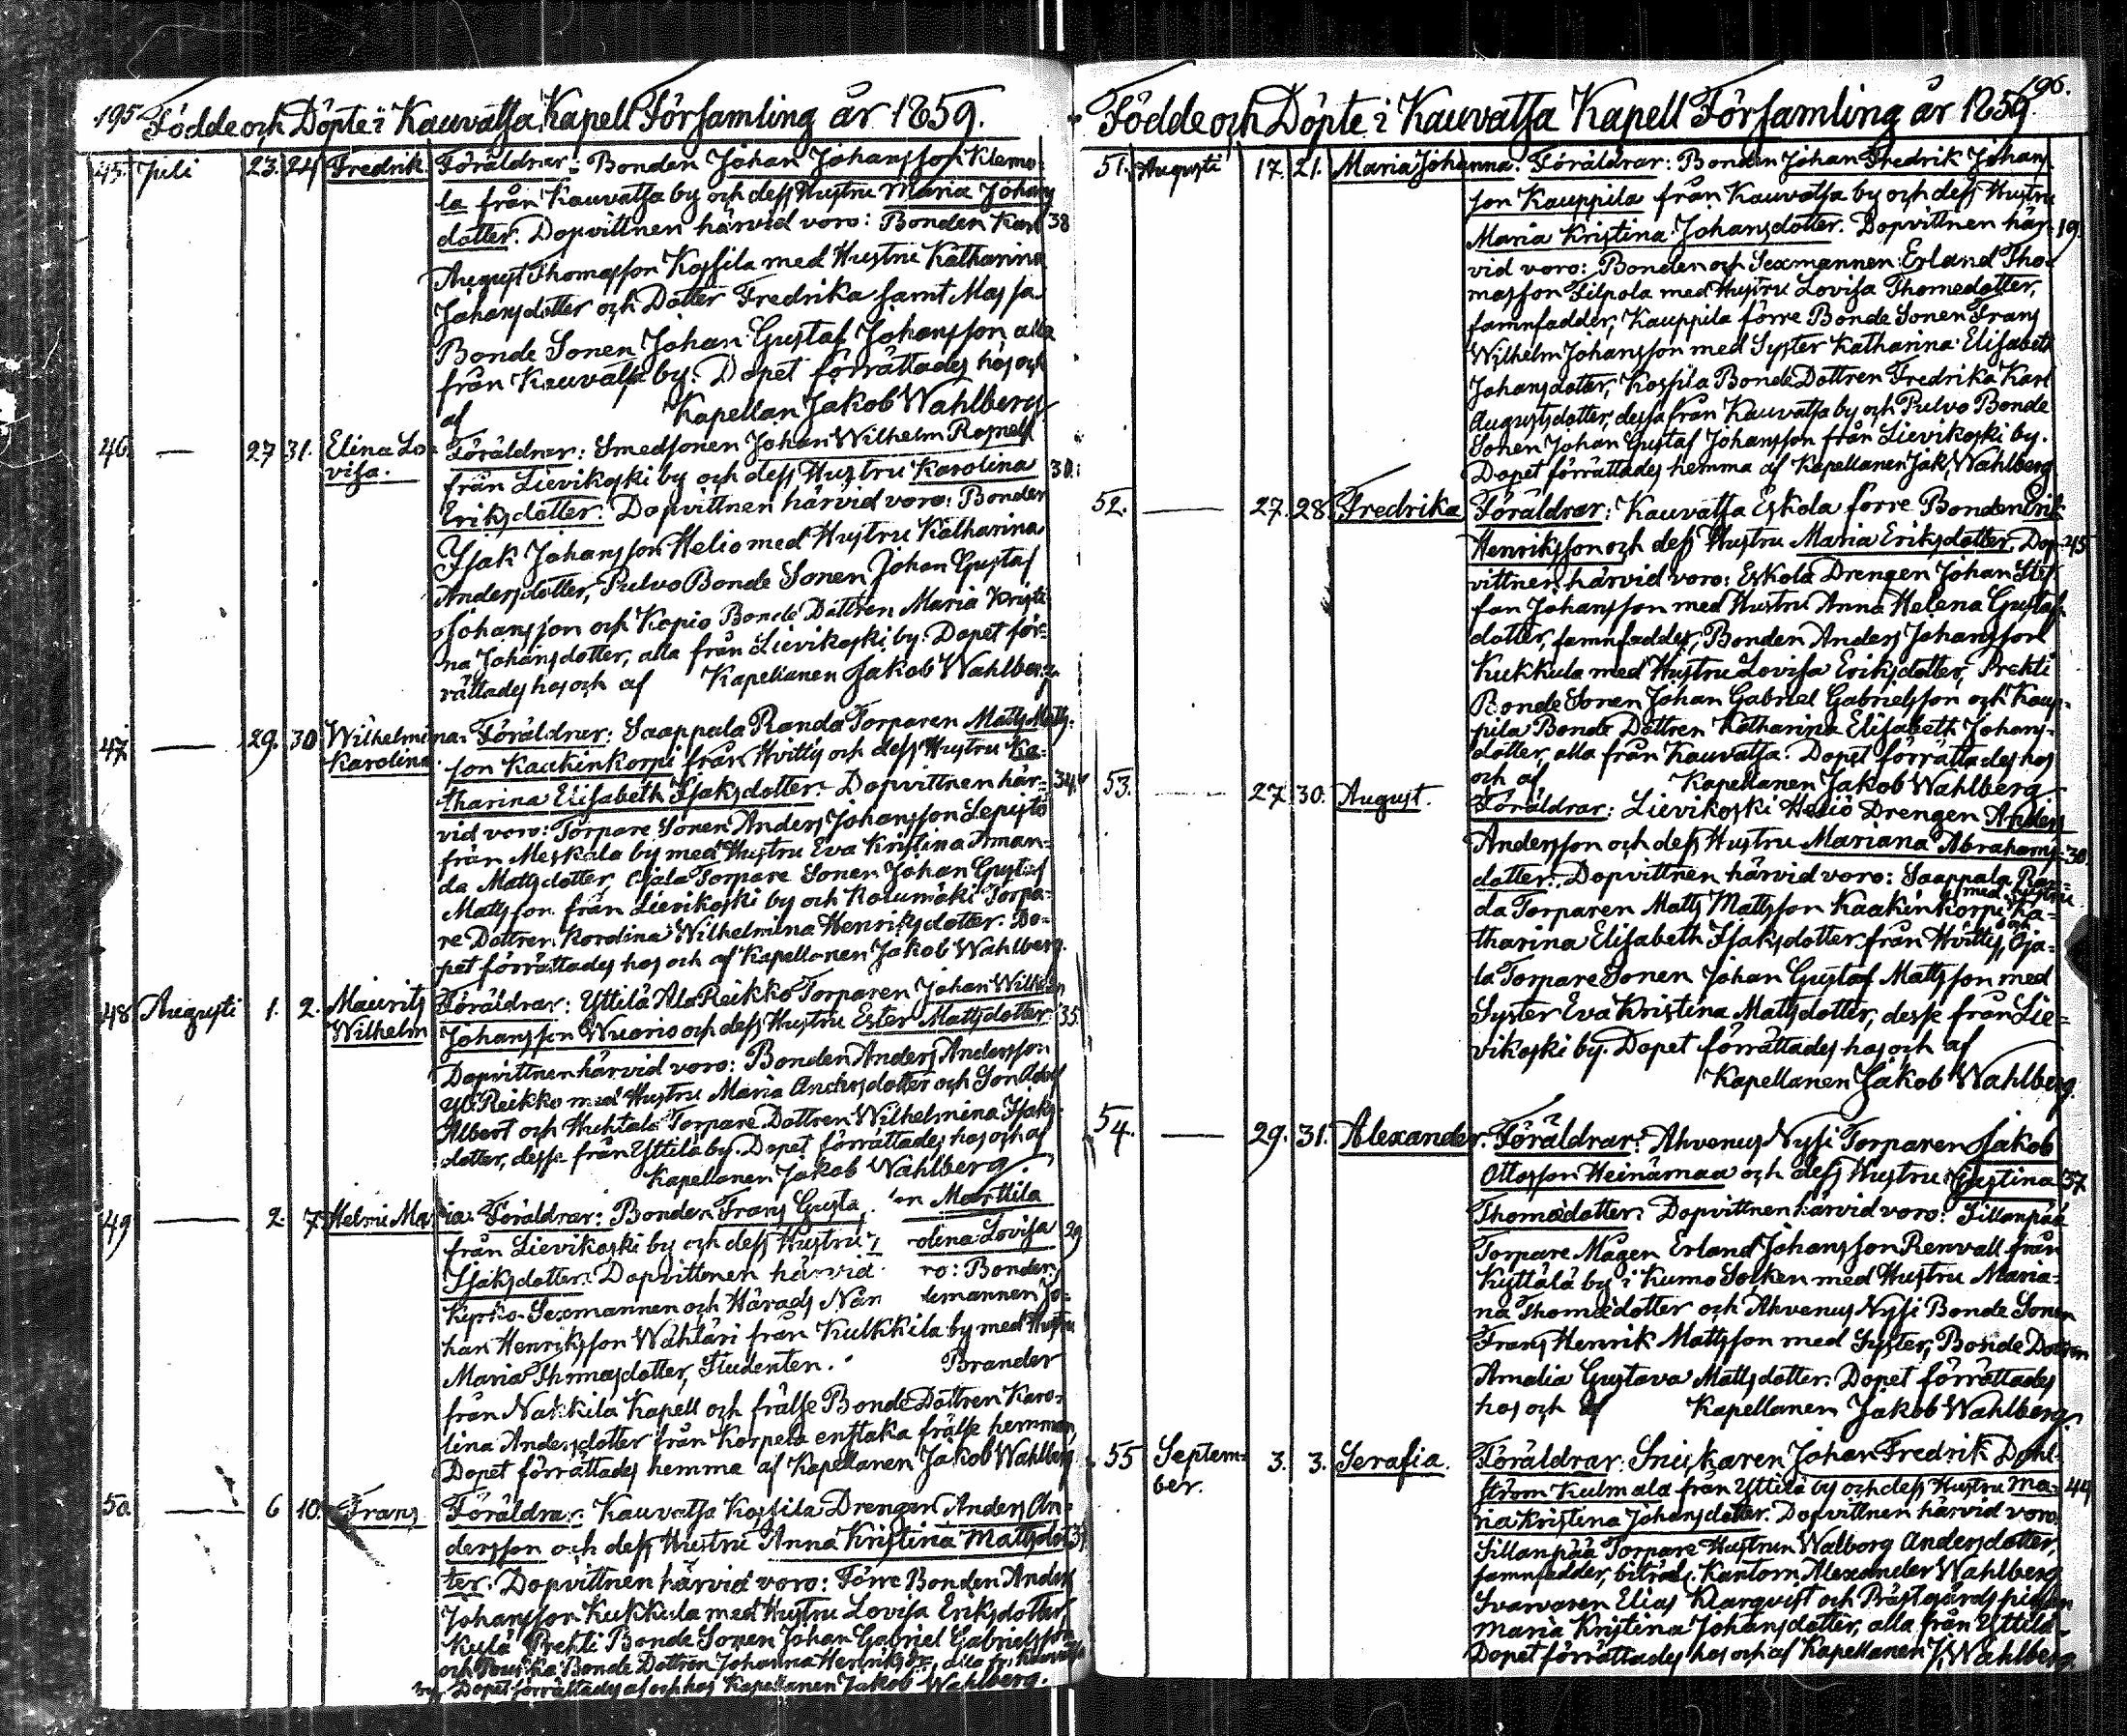 195
Födde och Döpte i Kauvatsa Kapell Församling år 1859.
45. Juli 23. 24 Fredrik. Föräldrar: Bonden Johan Johansson Klemo-
la från Kauvatsa by och dess Hustru Maria Johans
dotter. Dopvittnen härvid voro: Bonden Karl 38
August Thomasson Kossila med Hustru Katharina
Johansdotter och Dotter Fredrika samt Massa
Bonde Sonen Johan Gustaf Johansson alla
från Kauvatsa by. Dopet förrättades hos och
af Kapellan Jakob Wahlberg
46. — 27 31. Elina Lo- Föräldrar: Smedsonen Johan Wilhelm Rosnell
visa. från Lievikoski by och dess Hustru Karolina 30.
Eriksdotter. Dopvittnen härvid voro: Bonden
Isak Johansson Helio med Hustru Katharina
Andersdotter, Pulvo Bonde Sonen Johan Gustaf
Johansson och Kopio Bonde Dottren Maria Kristi-
na Johansdotter, alla från Lievikoski by. Dopet för-
rättades hos och af Kapellanen Jakob Wahlberg.
47 — 29. 30 Wilhelmina Föräldrar: Saappala Randa Torparen Matts Matts-
Karolina son Kaukinkorpi från Hvittis och dess Hustru Ka-
tharina Elisabeth Isaksdotter. Dopvittnen här- 34
vid voro: Torpare Sonen Anders Johansson Lepistö
från Meskala by med Hustru Eva Kristina Aman-
da Mattsdotter, Ojala Torpare Sonen Johan Gustaf
Mattsson från Lievikoski by och Torpa-
re Dottren Wilhelmina Henriksdotter. Do-
pet förrättades hos och af Kapellanen Jakob Wahlberg.
48 Augusti 1. 2. Maurits Föräldrar: Yttilä Ala Reikko Torparen Johan Wilhelm
Wilhelm Johansson Wuorio och dess Hustru Ester Mattsdotter. 35.
Dopvittnen härvid voro: Bonden Anders Andersson
Yli Reikko med Hustru Maria Andersdotter och Son Adolf
Albert och Huhtala Torpare Dottren Wilhelmina Isaks-
dotter, desse från Yttilä by. Dopet förrättades hos och af
Kapellanen Jakob Wahlberg.
49 — 2. 7. Helmi Maria. Föräldrar: Bonden Frans Gusta en Marttila
från Lievikoski by och dess Hustru olina Lovisa 29
Isaksdotter. Dopvittnen härvid ro: Bonden,
Kyrko-Sexmannen och Härads Näm demannen Jo-
han Henriksson Wähläri från Kulkkila by med Hustru
Maria Thomasdotter, Studenten Brander
från Nakkila Kapell och frälse Bonde Dottren Karo-
lina Andersdotter från Korpela enstaka frälse hemman,
Dopet förrättades hemma af Kapellanen Jakob Wahlberg
50. — 6 10. Frans Föräldrar: Kauvatsa Kossila Drengen Anders An-
dersson och dess Hustru Anna Kristina Mattsdot
ter. Dopvittnen härvid voro: Förre Bonden Anders
Johansson Kukkula med Hustru Lovisa Eriksdotter,
Prehti Bonde Sonen Johan Gabriel Gabrielsson
och Bonde Dottren Johanna
Dopet förrättades af och hos Kapellanen Jakob Wahlberg.
196.
Födde och Döpte i Kauvatsa Kapell Församling år 1859
51. Augusti 17. 21. Maria Johanna. Föräldrar: Bonden Johan Fredrik Johans
son Kauppila från Kauvatsa by och dess Hustru
Maria Kristina Johansdotter. Dopvittnen här- 19.
vid voro: Bonden och Sexmannen Erland Tho-
masson Filpola med Hustru Lovisa Thomedotter,
famnfadder, Kauppila förre Bonde Sonen Frans
Wilhelm Johansson med Syster Katharina Elisabeth
Johansdotter, Kossila Bonde Dottren Fredrika Karl
Augustsdotter, dessa från Kauvatsa by och Pulvo Bonde
Sonen Johan Gustaf Johansson från Lievikoski by.
Dopet förrättades hemma af Kapellanen Jak. Wahlberg
52. — 27. 28. Fredrika Föräldrar: Kauvatsa Eskola förre Bonden Erik
Henriksson och dess Hustru Maria Eriksdotter. Dop- 45
vittnen härvid voro: Eskola Drengen Johan Stef
fan Johansson med Hustru Anna Helena Gustafs
dotter, famnfadder, Bonden Anders Johansson
Kukkula med Hustru Lovisa Eriksdotter, Prehti
Bonde Sonen Johan Gabriel Gabrielsson och Kaup-
pila Bonde Dottren Katharina Elisabeth Johans-
dotter, alla från Kauvatsa. Dopet förrättades hos
och af Kapellanen Jakob Wahlberg
53. — 27. 30. August. Föräldrar: Lievikoski Helio Drengen Anders
Andersson och dess Hustru Mariana Abrahams- 30.
dotter. Dopvittnen härvid voro: Saappala Ran-
da Torparen Matts Mattsson Kaakinkorpi med Hustru Ka-
tharina Elisabeth Isaksdotter från Hvittis, och Oja-
la Torpare Sonen Johan Gustaf Mattsson med
Syster Eva Kristina Mattsdotter, desse från Lie-
vikoski by. Dopet förrättades hos och af
Kapellanen Jakob Wahlberg.
54. — 29. 31. Alexander. Föräldrar: Ahvenus Nysi Torparen Jakob
Ottosson Heinämaa och dess Hustru Justina 37
Thomédotter. Dopvittnen härvid voro: Sillanpää
Torpare Mågen Erland Johansson Renvall från
Kyttälä by i Kumo Socken med Hustru Maria-
na Thomédotter och Ahvenus Nysi Bonde Sonen
Frans Henrik Mattsson med Syster, Bonde Dottren
Amalia Gustava Mattsdotter. Dopet förrättades
hos och af Kapellanen Jakob Wahlberg.
55 Septem- 3. 3. Serafia. Föräldrar: Snickaren Johan Fredrik Dahl-
ber. ström Kulmala från Yttilä by och dess Hustru Ma- 44
ria Kristina Johansdotter. Dopvittnen härvid voro:
Sillanpää Torpare Hustrun Walborg Andersdotter,
famnfadder, biträd. Kantorn Alexander Wahlberg
Svarvaren Elias Klarqvist och Prästgårds pigan
Maria Kristina Johansdotter, alla från Yttilä.
Dopet förrättades hos och af Kapellanen J. Wahlberg.